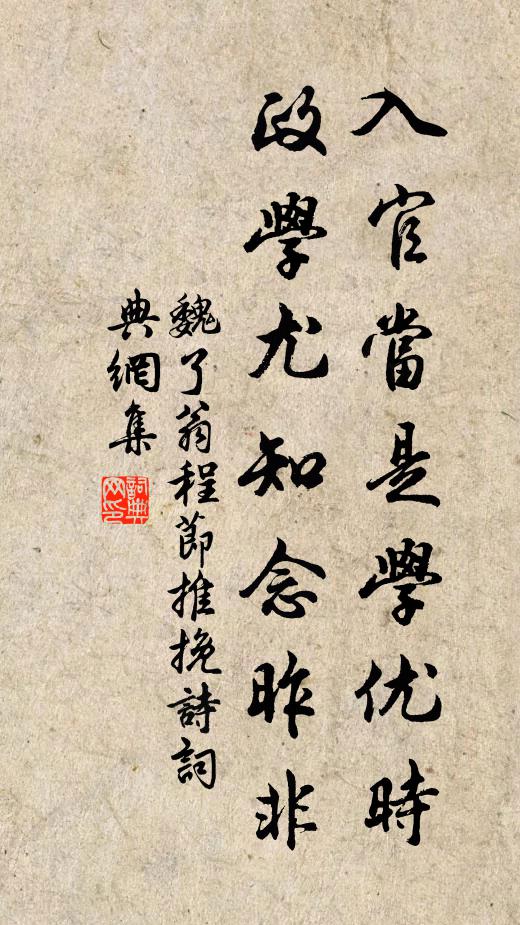 入官當是學优時
政學尤知念昨非
魏了翁程節推挽詩詞
典網集
詞典
网印